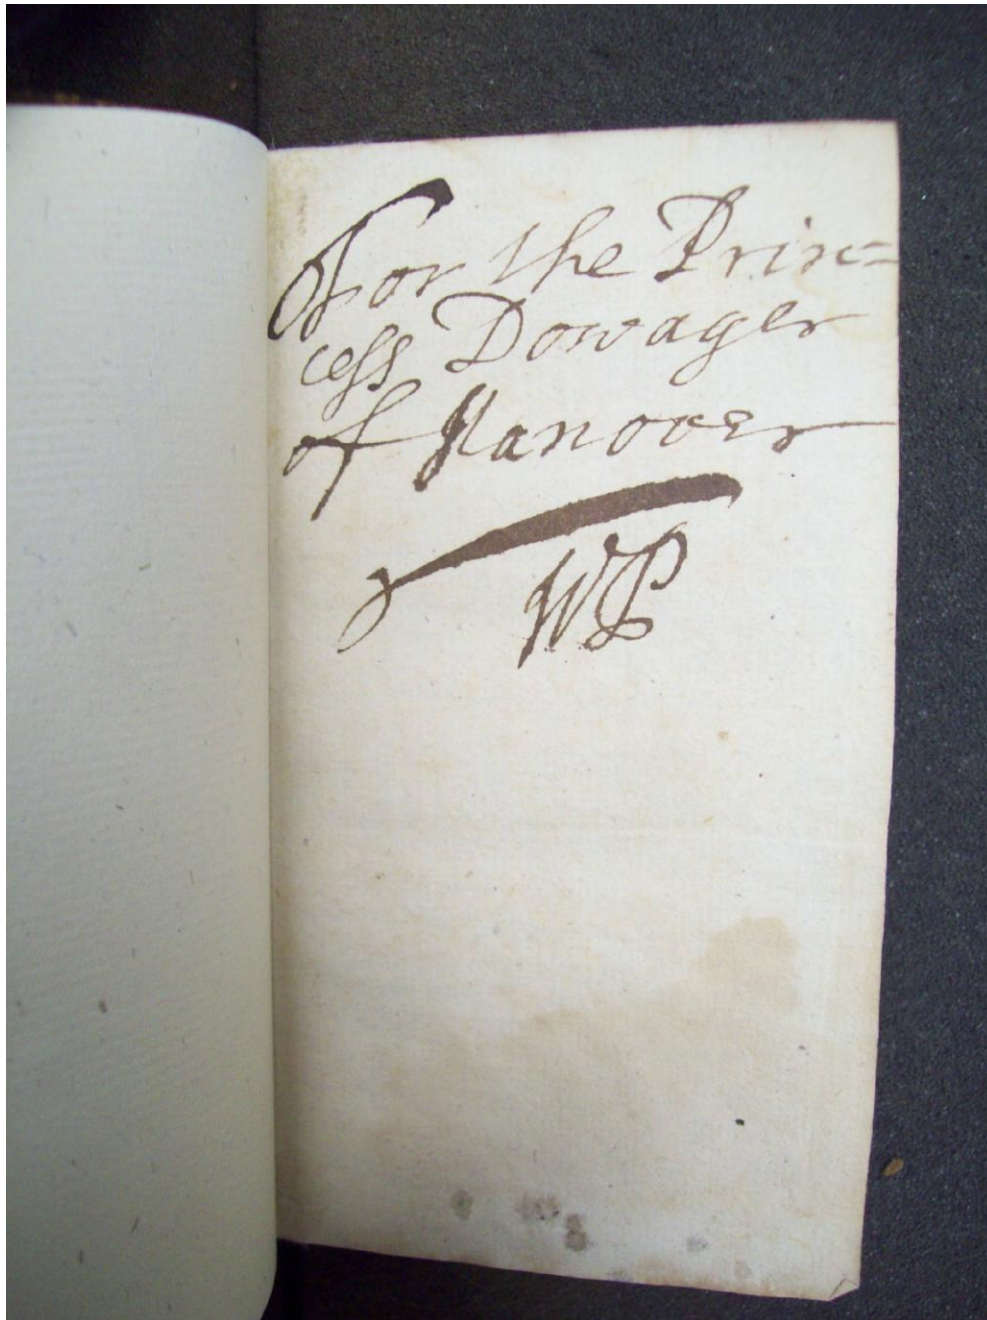 For the Prin=
cess Dowager
of Hanover
WP